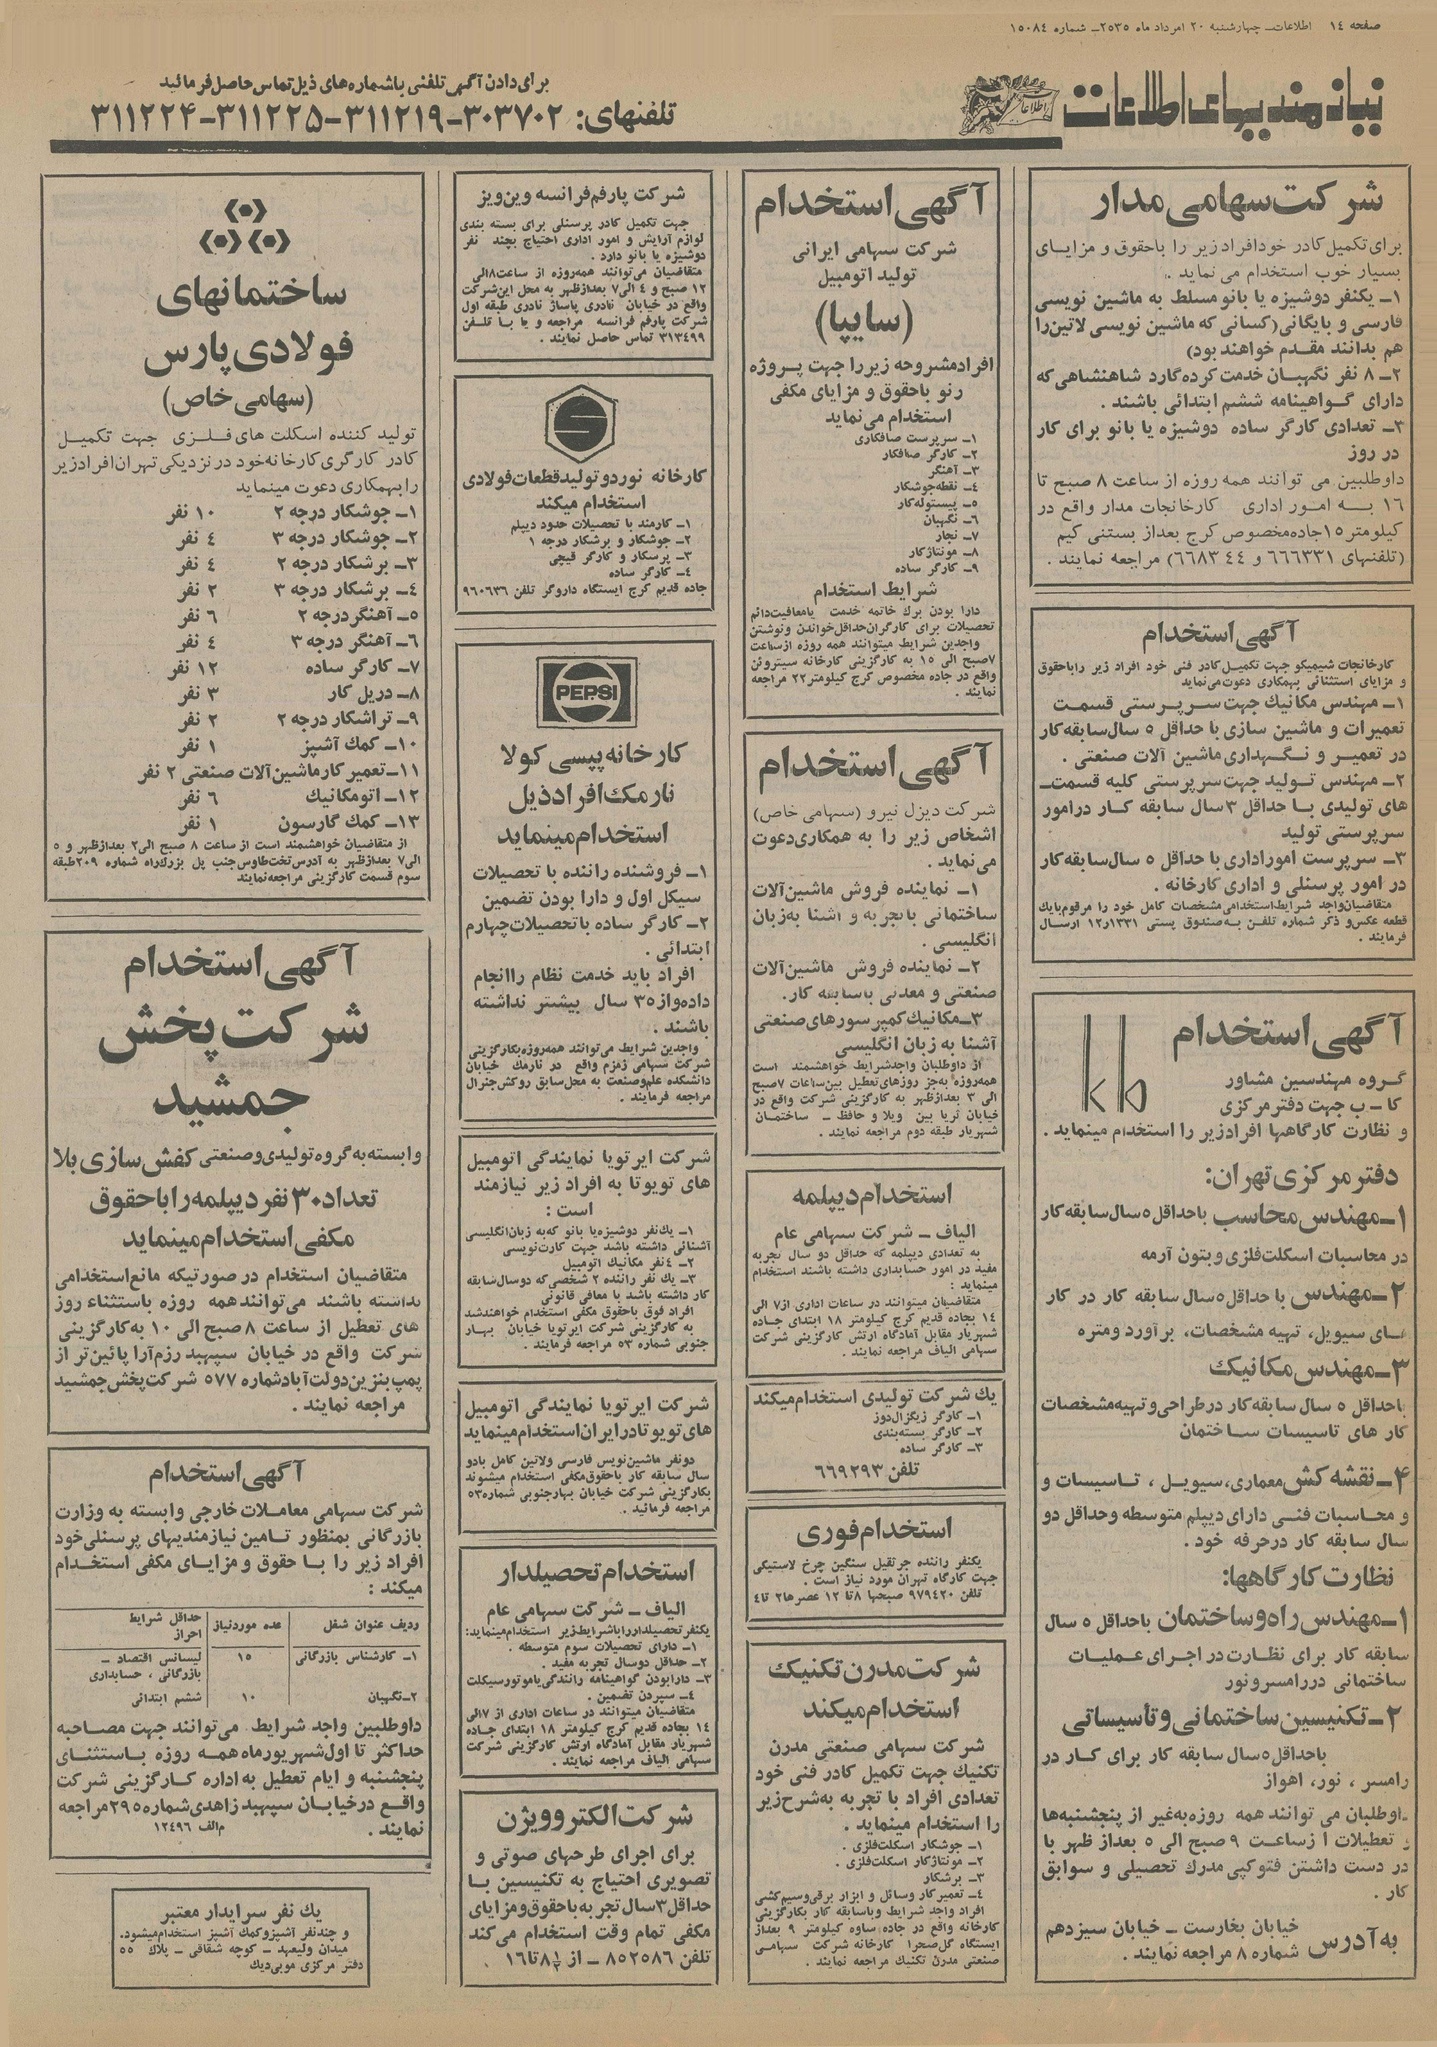 صفحه ۱۴ اطلاعات_ چهارشنبه ۲۰ امرداد ماه ۲۵۳۵_ شماره ۱۵۰۸۴
نیازمندیهای اطلاعات
برای دادن آگهی تلفنی باشماره‌های ذیل تماس حاصل فرمائید
تلفنهای: ۳۰۳۷۰۲-۳۱۱۲۱۹-۳۱۱۲۲۵-۳۱۱۲۲۴
شرکت سهامی مدار
برای تکمیل کادر خود افراد زیر را باحقوق و مزایای
بسیار خوب استخدام می نماید .
۱_ یکنفر دوشیزه یا بانو مسلط به ماشین نویسی
فارسی و بایگانی (کسانی که ماشین نویسی لاتین را
هم بدانند مقدم خواهند بود)
۲_ ۸ نفر نگهبان خدمت کرده گارد شاهنشاهی که
دارای گواهینامه ششم ابتدائی باشند .
۳_ تعدادی کارگر ساده دوشیزه یا بانو برای کار
در روز
داوطلبین می توانند همه روزه از ساعت ۸ صبح تا
۱۶ به امور اداری کارخانجات مدار واقع در
کیلومتر ۱۵ جاده مخصوص کرج بعداز بستنی کیم
(تلفنهای ۶۶۶۳۳۱ و ۶۶۸۳۴۴) مراجعه نمایند .
آگهی استخدام
کارخانجات شیمیکو جهت تکمیل کادر فنی خود افراد زیر را باحقوق
و مزایای استثنائی بهمکاری دعوت می نماید
۱_ مهندس مکانیک جهت سرپرستی قسمت
تعمیرات و ماشین سازی با حداقل ۵ سال سابقه کار
در تعمیر و نگهداری ماشین آلات صنعتی .
۲_ مهندس تولید جهت سرپرستی کلیه قسمت_
های تولیدی با حداقل ۳ سال سابقه کار در امور
سرپرستی تولید
۳_ سرپرست امور اداری با حداقل ۵ سال سابقه کار
در امور پرسنلی و اداری کارخانه .
متقاضیان واجد شرایط استخدامی مشخصات کامل خود را مرقوم با یک
قطعه عکس و ذکر شماره تلفن به صندوق پستی ۱۳۳۱ر۱۲ ارسال
فرمایند .
آگهی استخدام
گروه مهندسین مشاور
کا_ ب جهت دفتر مرکزی
و نظارت کارگاهها افراد زیر را استخدام مینماید .
دفتر مرکزی تهران:
۱_مهندس محاسب باحداقل ۵ سال سابقه کار
در محاسبات اسکلت فلزی و بتون آرمه
۲_مهندس با حداقل ۵ سال سابقه کار در کار
های سیویل، تهیه مشخصات، برآورد و متره
۳_مهندس مکانیک
باحداقل ۵ سال سابقه کار در طراحی و تهیه مشخصات
کار های تاسیسات ساختمان
۴_نقشه کش معماری، سیویل ، تاسیسات و
و محاسبات فنی دارای دیپلم متوسطه و حداقل دو
سال سابقه کار در حرفه خود .
نظارت کارگاهها:
۱_مهندس راه و ساختمان باحداقل ۵ سال
سابقه کار برای نظارت در اجرای عملیات
ساختمانی در رامسر و نور
۲_تکنیسین ساختمانی و تأسیساتی
باحداقل ۵ سال سابقه کار برای کار در
رامسر ، نور، اهواز
داوطلبان می توانند همه روزه به غیر از پنجشنبه‌ها
و تعطیلات از ساعت ۹ صبح الی ۵ بعداز ظهر با
در دست داشتن فتوکپی مدرک تحصیلی و سوابق
کار .
به آدرس خیابان بخارست _ خیابان سیزدهم
شماره ۸ مراجعه نمایند .
آگهی استخدام
شرکت سهامی ایرانی
تولید اتومبیل
(سایپا)
افراد مشروحه زیر را جهت پروژه
رنو باحقوق و مزایای مکفی
استخدام می نماید
۱_ سرپرست صافکاری
۲_ کارگر صافکار
۳_ آهنگر
۴_ نقطه جوشکار
۵_ پیستوله کار
۶_ نگهبان
۷_ نجار
۸_ مونتاژکار
۹_ کارگر ساده
شرایط استخدام
دارا بودن برگ خاتمه خدمت یا معافیت دائم
تحصیلات برای کارگران حداقل خواندن و نوشتن
واجدین شرایط میتوانند همه روزه از ساعت
۷ صبح الی ۱۵ به کارگزینی کارخانه سیتروئن
واقع در جاده مخصوص کرج کیلومتر ۲۲ مراجعه
نمایند .
آگهی استخدام
شرکت دیزل نیرو (سهامی خاص)
اشخاص زیر را به همکاری دعوت
می نماید .
۱_ نماینده فروش ماشین آلات
ساختمانی با تجربه و آشنا به زبان
انگلیسی .
۲_ نماینده فروش ماشین آلات
صنعتی و معدنی با سابقه کار.
۳_مکانیک کمپرسورهای صنعتی
آشنا به زبان انگلیسی
از داوطلبان واجد شرایط خواهشمند است
همه روزه به جز روزهای تعطیل بین ساعات ۷ صبح
الی ۳ بعدازظهر به کارگزینی شرکت واقع در
خیابان ثریا بین ویلا و حافظ _ ساختمان
شهریار طبقه دوم مراجعه نمایند .
استخدام دیپلمه
الیاف _ شرکت سهامی عام
به تعدادی دیپلمه که حداقل دو سال تجربه
مفید در امور حسابداری داشته باشند استخدام
مینماید:
متقاضیان میتوانند در ساعات اداری از ۷ الی
۱۴ بجاده قدیم کرج کیلومتر ۱۸ ابتدای جاده
شهریار مقابل آمادگاه ارتش کارگزینی شرکت
سهامی الیاف مراجعه نمایند .
یک شرکت تولیدی استخدام میکند
۱_ کارگر زیگزال دوز
۲_ کارگر بسته بندی
۳_ کارگر ساده
تلفن ۶۶۹۲۹۳
استخدام فوری
یکنفر راننده جرثقیل سنگین چرخ لاستیکی
جهت کارگاه تهران مورد نیاز است .
تلفن ۹۷۹۴۲۰ صبحها ۸ تا ۱۲ عصرها ۲ تا ۴
شرکت مدرن تکنیک
استخدام میکند
شرکت سهامی صنعتی مدرن
تکنیک جهت تکمیل کادر فنی خود
تعدادی افراد با تجربه به شرح زیر
را استخدام مینماید .
۱_ جوشکار اسکلت فلزی .
۲_ مونتاژکار اسکلت فلزی .
۳_ برشکار
۴_ تعمیرکار وسائل و ابزار برقی و سیم کشی
افراد واجد شرایط و با سابقه کار بکارگزینی
کارخانه واقع در جاده ساوه کیلومتر ۹ بعداز
ایستگاه گل صحرا کارخانه شرکت سهامی
صنعتی مدرن تکنیک مراجعه نمایند .
شرکت پارفم فرانسه وین ویز
جهت تکمیل کادر پرسنلی برای بسته بندی
لوازم آرایش و امور اداری احتیاج بچند نفر
دوشیزه یا بانو دارد .
متقاضیان می‌توانند همه روزه از ساعت ۸ الی
۱۲ صبح و ۴ الی ۷ بعدازظهر به محل این شرکت
واقع در خیابان نادری پاساژ نادری طبقه اول
شرکت پارفم فرانسه مراجعه و یا با تلفن
۳۱۳۴۹۹ تماس حاصل نمایند .
کارخانه نورد و تولید قطعات فولادی
استخدام میکند
۱_ کارمند با تحصیلات حدود دیپلم
۲_ جوشکار و برشکار درجه ۱
۳_ پرسکار و کارگر قیچی
۴_ کارگر ساده
جاده قدیم کرج ایستگاه داروگر تلفن ۹۶۰۶۳۶
PEPSI
کارخانه پپسی کولا
نارمک افراد ذیل
استخدام مینماید
۱_ فروشنده راننده با تحصیلات
سیکل اول و دارا بودن تضمین
۲_ کارگر ساده با تحصیلات چهارم
ابتدائی .
افراد باید خدمت نظام را انجام
داده و از ۳۵ سال بیشتر نداشته
باشند .
واجدین شرایط می‌توانند همه روزه بکارگزینی
شرکت سهامی زمزم واقع در نارمک خیابان
دانشکده علم و صنعت به محل سابق روکش جنرال
مراجعه فرمایند .
شرکت ایرتویا نمایندگی اتومبیل
های تویوتا به افراد زیر نیازمند
است :
۱_ یک نفر دوشیزه یا بانو که به زبان انگلیسی
آشنائی داشته باشد جهت کارت نویسی
۲_ ۴ نفر مکانیک اتومبیل
۳_ یک نفر راننده ۲ شخصی که دو سال سابقه
کار داشته باشد با معافی قانونی
افراد فوق باحقوق مکفی استخدام خواهند شد
به کارگزینی شرکت ایرتویا خیابان بهار
جنوبی شماره ۵۳ مراجعه فرمایند .
شرکت ایرتویا نمایندگی اتومبیل
های تویوتا در ایران استخدام مینماید
دو نفر ماشین نویس فارسی و لاتین کامل با دو
سال سابقه کار باحقوق مکفی استخدام میشوند
بکارگزینی شرکت خیابان بهار جنوبی شماره ۵۳
مراجعه فرمائید .
استخدام تحصیلدار
الیاف _ شرکت سهامی عام
یکنفر تحصیلدار را با شرایط زیر استخدام مینماید:
۱_ دارای تحصیلات سوم متوسطه .
۲_ حداقل دو سال تجربه مفید .
۳_ دارا بودن گواهینامه رانندگی با موتورسیکلت
۴_ سپردن تضمین .
متقاضیان میتوانند در ساعات اداری از ۷ الی
۱۴ بجاده قدیم کرج کیلومتر ۱۸ ابتدای جاده
شهریار مقابل آمادگاه ارتش کارگزینی شرکت
سهامی الیاف مراجعه نمایند .
شرکت الکتروویژن
برای اجرای طرحهای صوتی و
تصویری احتیاج به تکنیسین با
حداقل ۳ سال تجربه باحقوق و مزایای
مکفی تمام وقت استخدام می کند
تلفن ۸۵۲۵۸۶ _ از ۸½ تا ۱۶ .
ساختمانهای
فولادی پارس
(سهامی خاص)
تولید کننده اسکلت های فلزی جهت تکمیل
کادر کارگری کارخانه خود در نزدیکی تهران افراد زیر
را بهمکاری دعوت مینماید
۱_ جوشکار درجه ۲ ۱۰ نفر
۲_ جوشکار درجه ۳ ۴ نفر
۳_ برشکار درجه ۲ ۴ نفر
۴_ برشکار درجه ۳ ۲ نفر
۵_ آهنگر درجه ۲ ۶ نفر
۶_ آهنگر درجه ۳ ۴ نفر
۷_ کارگر ساده ۱۲ نفر
۸_ دریل کار ۳ نفر
۹_ تراشکار درجه ۲ ۲ نفر
۱۰_ کمک آشپز ۱ نفر
۱۱_تعمیر کار ماشین آلات صنعتی ۲ نفر
۱۲_ اتومکانیک ۶ نفر
۱۳_ کمک گارسون ۱ نفر
از متقاضیان خواهشمند است از ساعت ۸ صبح الی ۲ بعدازظهر و ۵
الی ۷ بعدازظهر به آدرس تخت طاوس جنب پل بزرگراه شماره ۲۰۹ طبقه
سوم قسمت کارگزینی مراجعه نمایند
آگهی استخدام
شرکت پخش
جمشید
وابسته به گروه تولیدی و صنعتی کفش سازی بلا
تعداد ۳۰ نفر دیپلمه را باحقوق
مکفی استخدام مینماید
متقاضیان استخدام در صورتیکه مانع استخدامی
نداشته باشند می توانند همه روزه باستثناء روز
های تعطیل از ساعت ۸ صبح الی ۱۰ به کارگزینی
شرکت واقع در خیابان سپهبد رزم آرا پائین تر از
پمپ بنزین دولت آباد شماره ۵۷۷ شرکت پخش جمشید
مراجعه نمایند .
آگهی استخدام
شرکت سهامی معاملات خارجی وابسته به وزارت
بازرگانی بمنظور تامین نیازمندیهای پرسنلی خود
افراد زیر را با حقوق و مزایای مکفی استخدام
میکند :
ردیف عنوان شغل عده مورد نیاز حداقل شرایط احراز
۱_ کارشناس بازرگانی ۱۵ لیسانس اقتصاد _
بازرگانی ، حسابداری
۲_نگهبان ۱۰ ششم ابتدائی
داوطلبین واجد شرایط می توانند جهت مصاحبه
حداکثر تا اول شهریور ماه همه روزه باستثنای
پنجشنبه و ایام تعطیل به اداره کارگزینی شرکت
واقع در خیابان سپهبد زاهدی شماره ۲۹۵ مراجعه
نمایند . م الف ۱۲۴۹۶
یک نفر سرایدار معتبر
و چند نفر آشپز و کمک آشپز استخدام میشود.
میدان ولیعهد _ کوچه شقاقی _ پلاک ۵۵
دفتر مرکزی موبی دیک